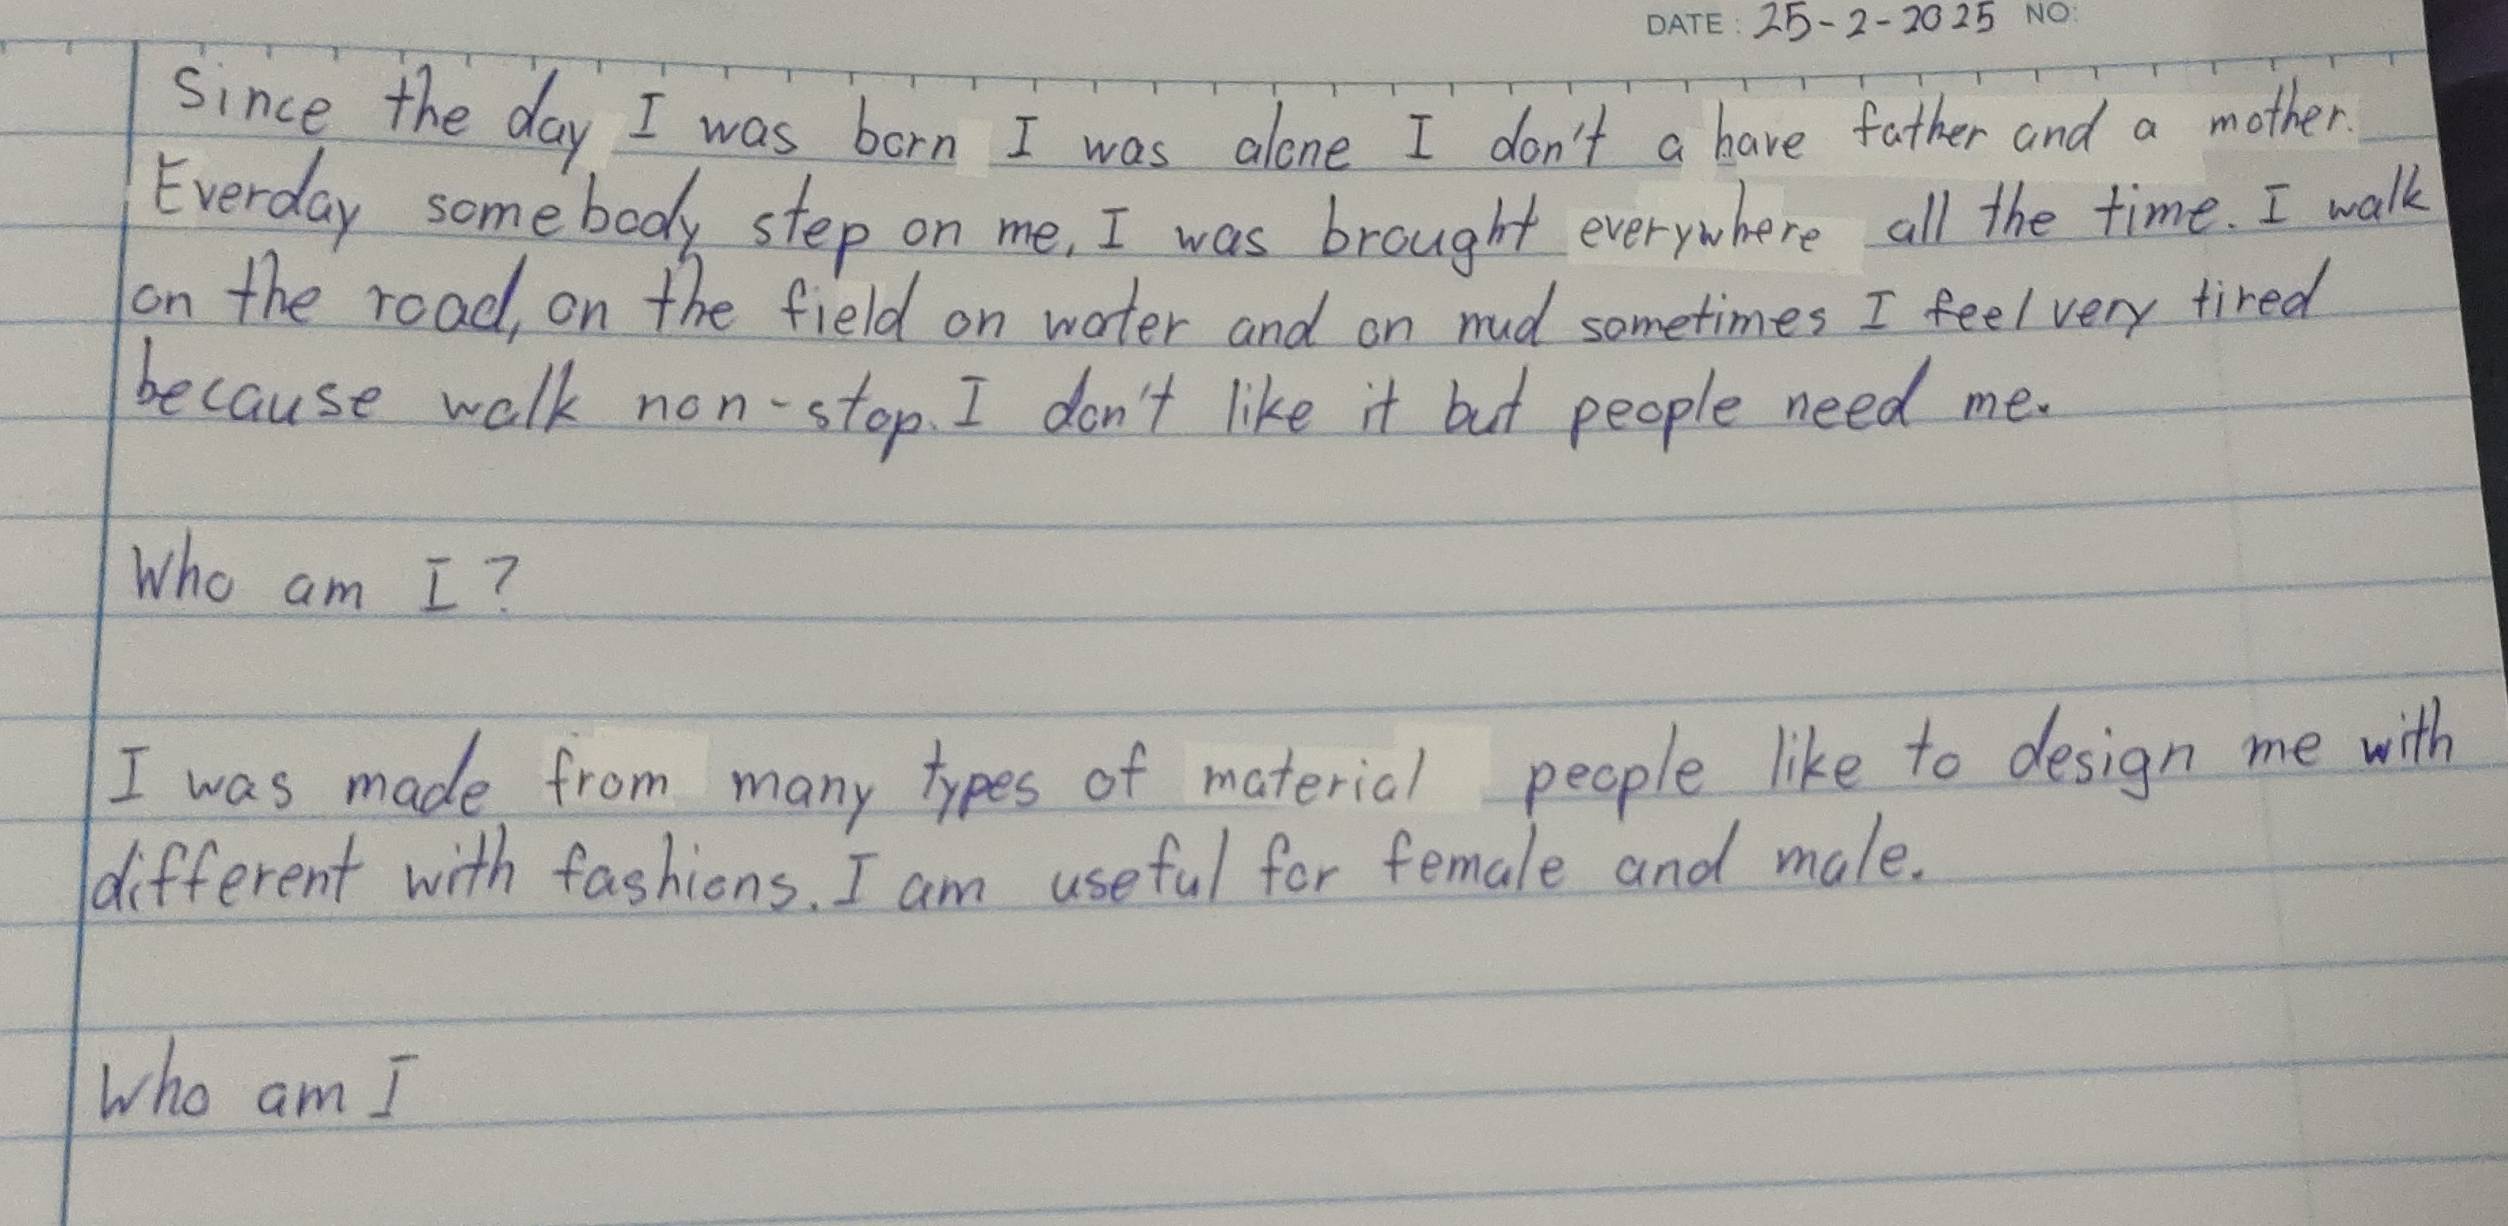 DATE: 25-2-2025 NO:
Since the day I was born I was alone I don't a have father and a mother.
Everday somebody step on me, I was brought everywhere all the time. I walk
on the road, on the field on water and on mud sometimes I feel very tired
because walk non-stop. I don't like it but people need me.
Who am I?
I was made from many types of material people like to design me with
different with fashions. I am useful for female and male.
Who am I